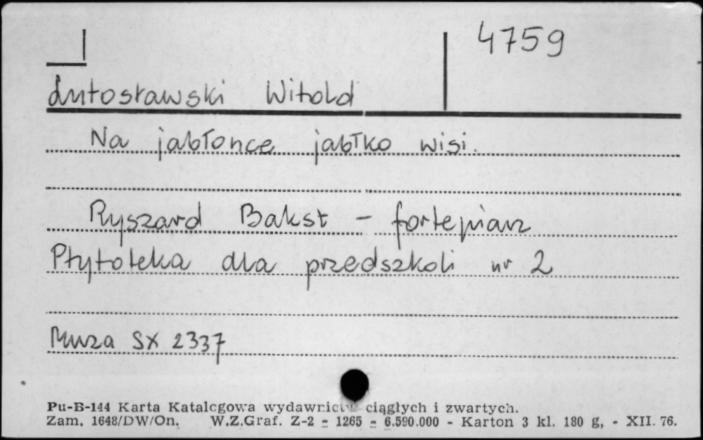 4759
Lutosławski Witold
Na jabłonce jabłko wisi.
Ryszard Bakst - fortepian
Płytoteka dla przedszkoli nr 2
Muza SX 2337
Pu-B-144 Karta Katalogowa wydawnictw ciągłych i zwartych.
Zam. 1648/DW/On. W.Z.Graf. Z-2 = 1265 = 6.590.000 - Karton 3 kl. 180 g, - XII. 76.